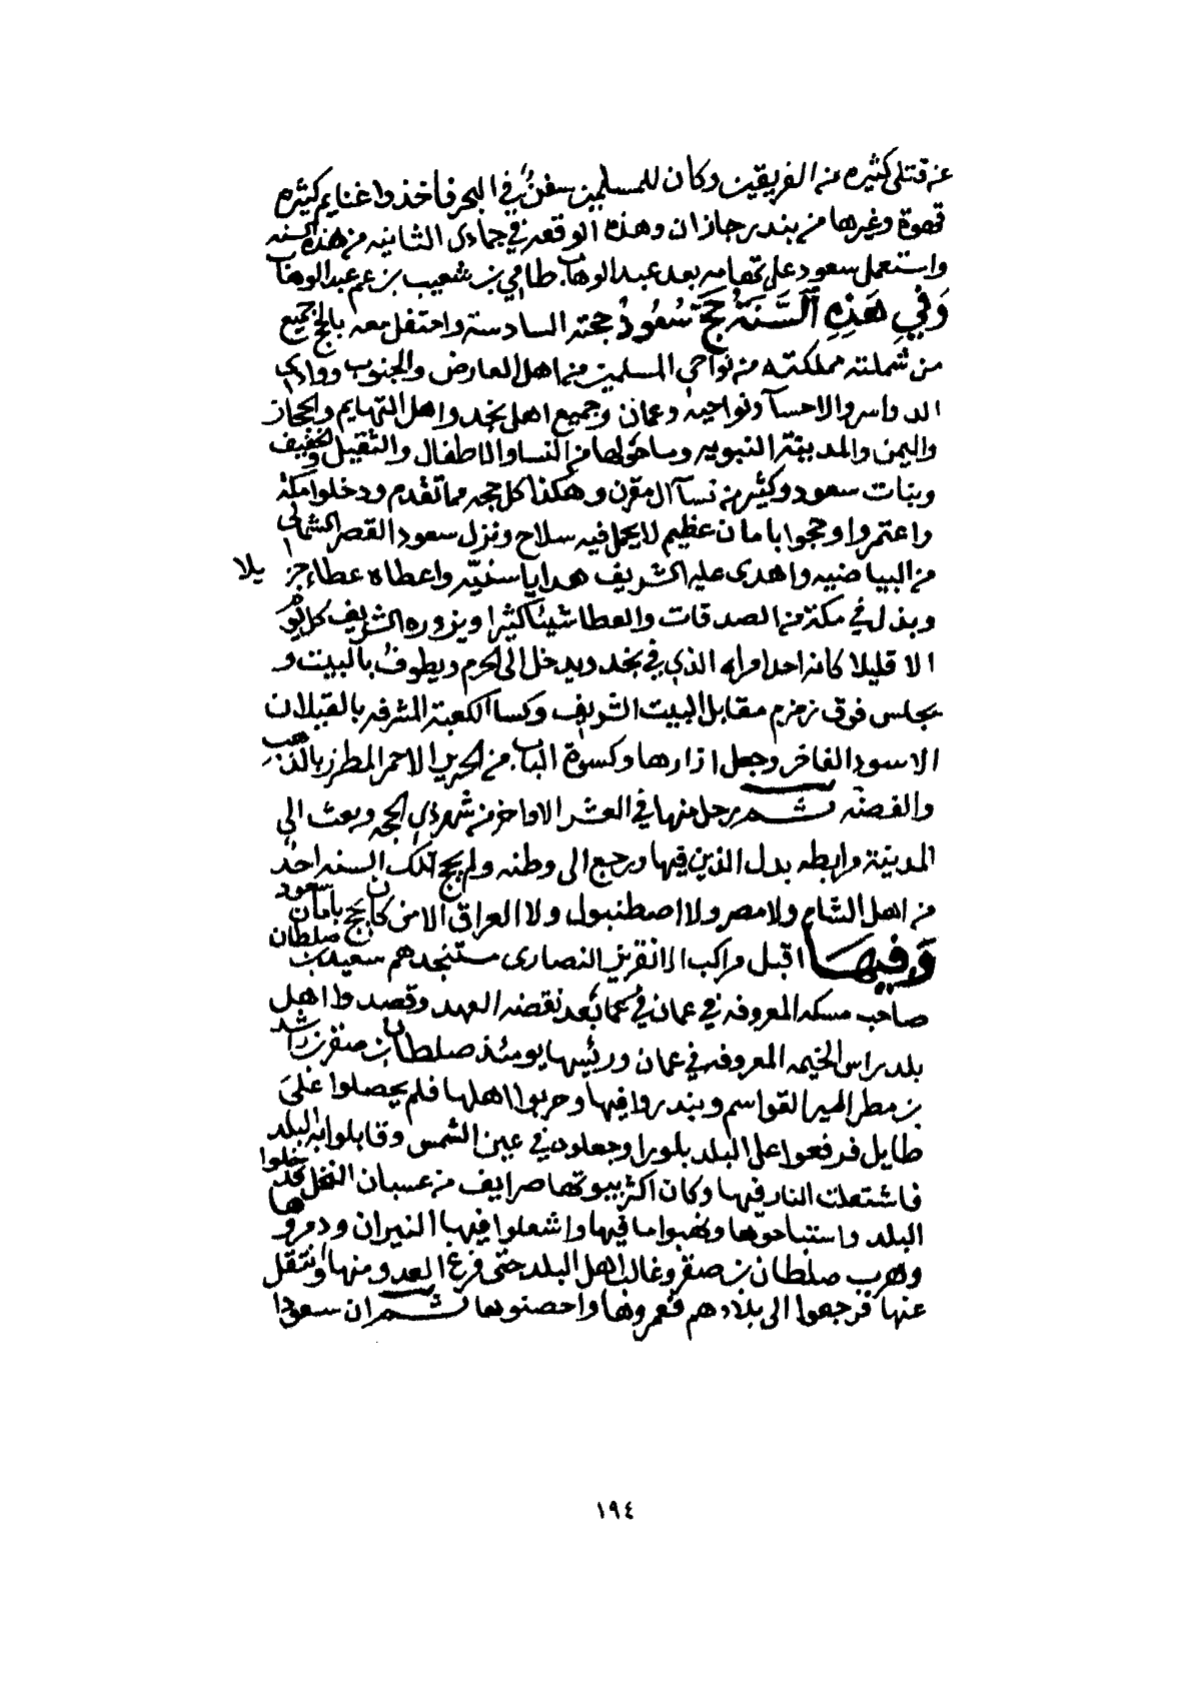 عن قتلى كثيره من الفريقين وكان للمسلمين سفنٌ في البحر فأخذوا غنايم كثيره
قهوة وغيرها من بندر جازان وهذه الوقعه في جمادى الثانيه من هذه السنه
واستعمل سعود على تهامه بعد عبدالوهاب طامي بن شعيب بن عم عبدالوهاب
وَفِي هَذِهِ ٱلسَّنَةُ حَجَّ سُعُودُ حجته السادسة واحتفل معه بالحج جميع
من شملته مملكته من نواحي المسلمين من اهل العارض والجنوب ووادي
الدواسر والاحسآ ونواحيه وعمان وجميع اهل نجد واهل التهايم والحجاز
واليمن والمدينة النبويه وما حولها من النسا والاطفال والثقيل والخفيف
وبنات سعود وكثير من نسآ ال مقرن وهكذا كل حجه مما تقدم ودخلوا مكة
واعتمروا وحجوا بامان عظيم لا يحمل فيه سلاح ونزل سعود القصر الشمالي
من البياضيه واهدى عليه الشريف هدايا سنيّه واعطاه عطاء جزيلا
وبذل في مكة من الصدقات والعطا شيئا كثيرا ويزوره الشريف كل يوم
الا قليلا كانه احد امرايه الذي في نجد ويدخل الى الحرم ويطوفُ بالبيت و
يجلس فوق زمزم مقابل البيت الشريف وكسا الكعبة المشرفه بالقيلان
الاسود الفاخر وجعل ازارها وكسوة الباب من الحرير الاحمر المطرز بالذهب
والفضه ثم رحل منها في العشر الاواخر من شهر ذي الحجه وبعث الى
المدينة مرابطه بدل الذين فيها ورجع الى وطنه ولم يحج تلك السنه احدٌ
من اهل الشام ولا مصر ولا اصطنبول ولا العراق الا من كان يحج بامان سعود
وَفيهَا اقبل مراكب الانقريز النصارى مستنجدهم سعيد بن صلطان
صاحب مسكه المعروفه في عمان بعد نقضه العهد وقصدوا اهل
بلد راس الخيمه المعروفه في عمان ورئيسها يومئذ صلطان بن صقر بن راشد
بن مطر المير القواسم وبندروا فيها وحربوا اهلها فلم يحصلوا على
طايل فرفعوا على البلد بلورا وجعلوه في عين الشمس وقابلوا به البلد
فاشتعلت النار فيها وكان اكثر بيوتها صرايف من عسبان النخل فدخلوا
البلد واستباحوها ونهبوا ما فيها واشعلوا فيها النيران ودمروها
وهرب صلطان بن صقر وغالب اهل البلد حتى فرغ العدو منها وانتقل
عنها فرجعوا الى بلادهم فعمروها واحصنوها ثم ان سعودا
١٩٤